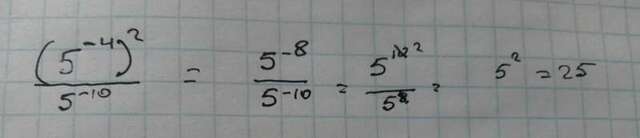 (5^-4)^2 / 5^-10 = 5^-8 / 5^-10 = 5^10 2 / 5^8 = 5^2 = 25